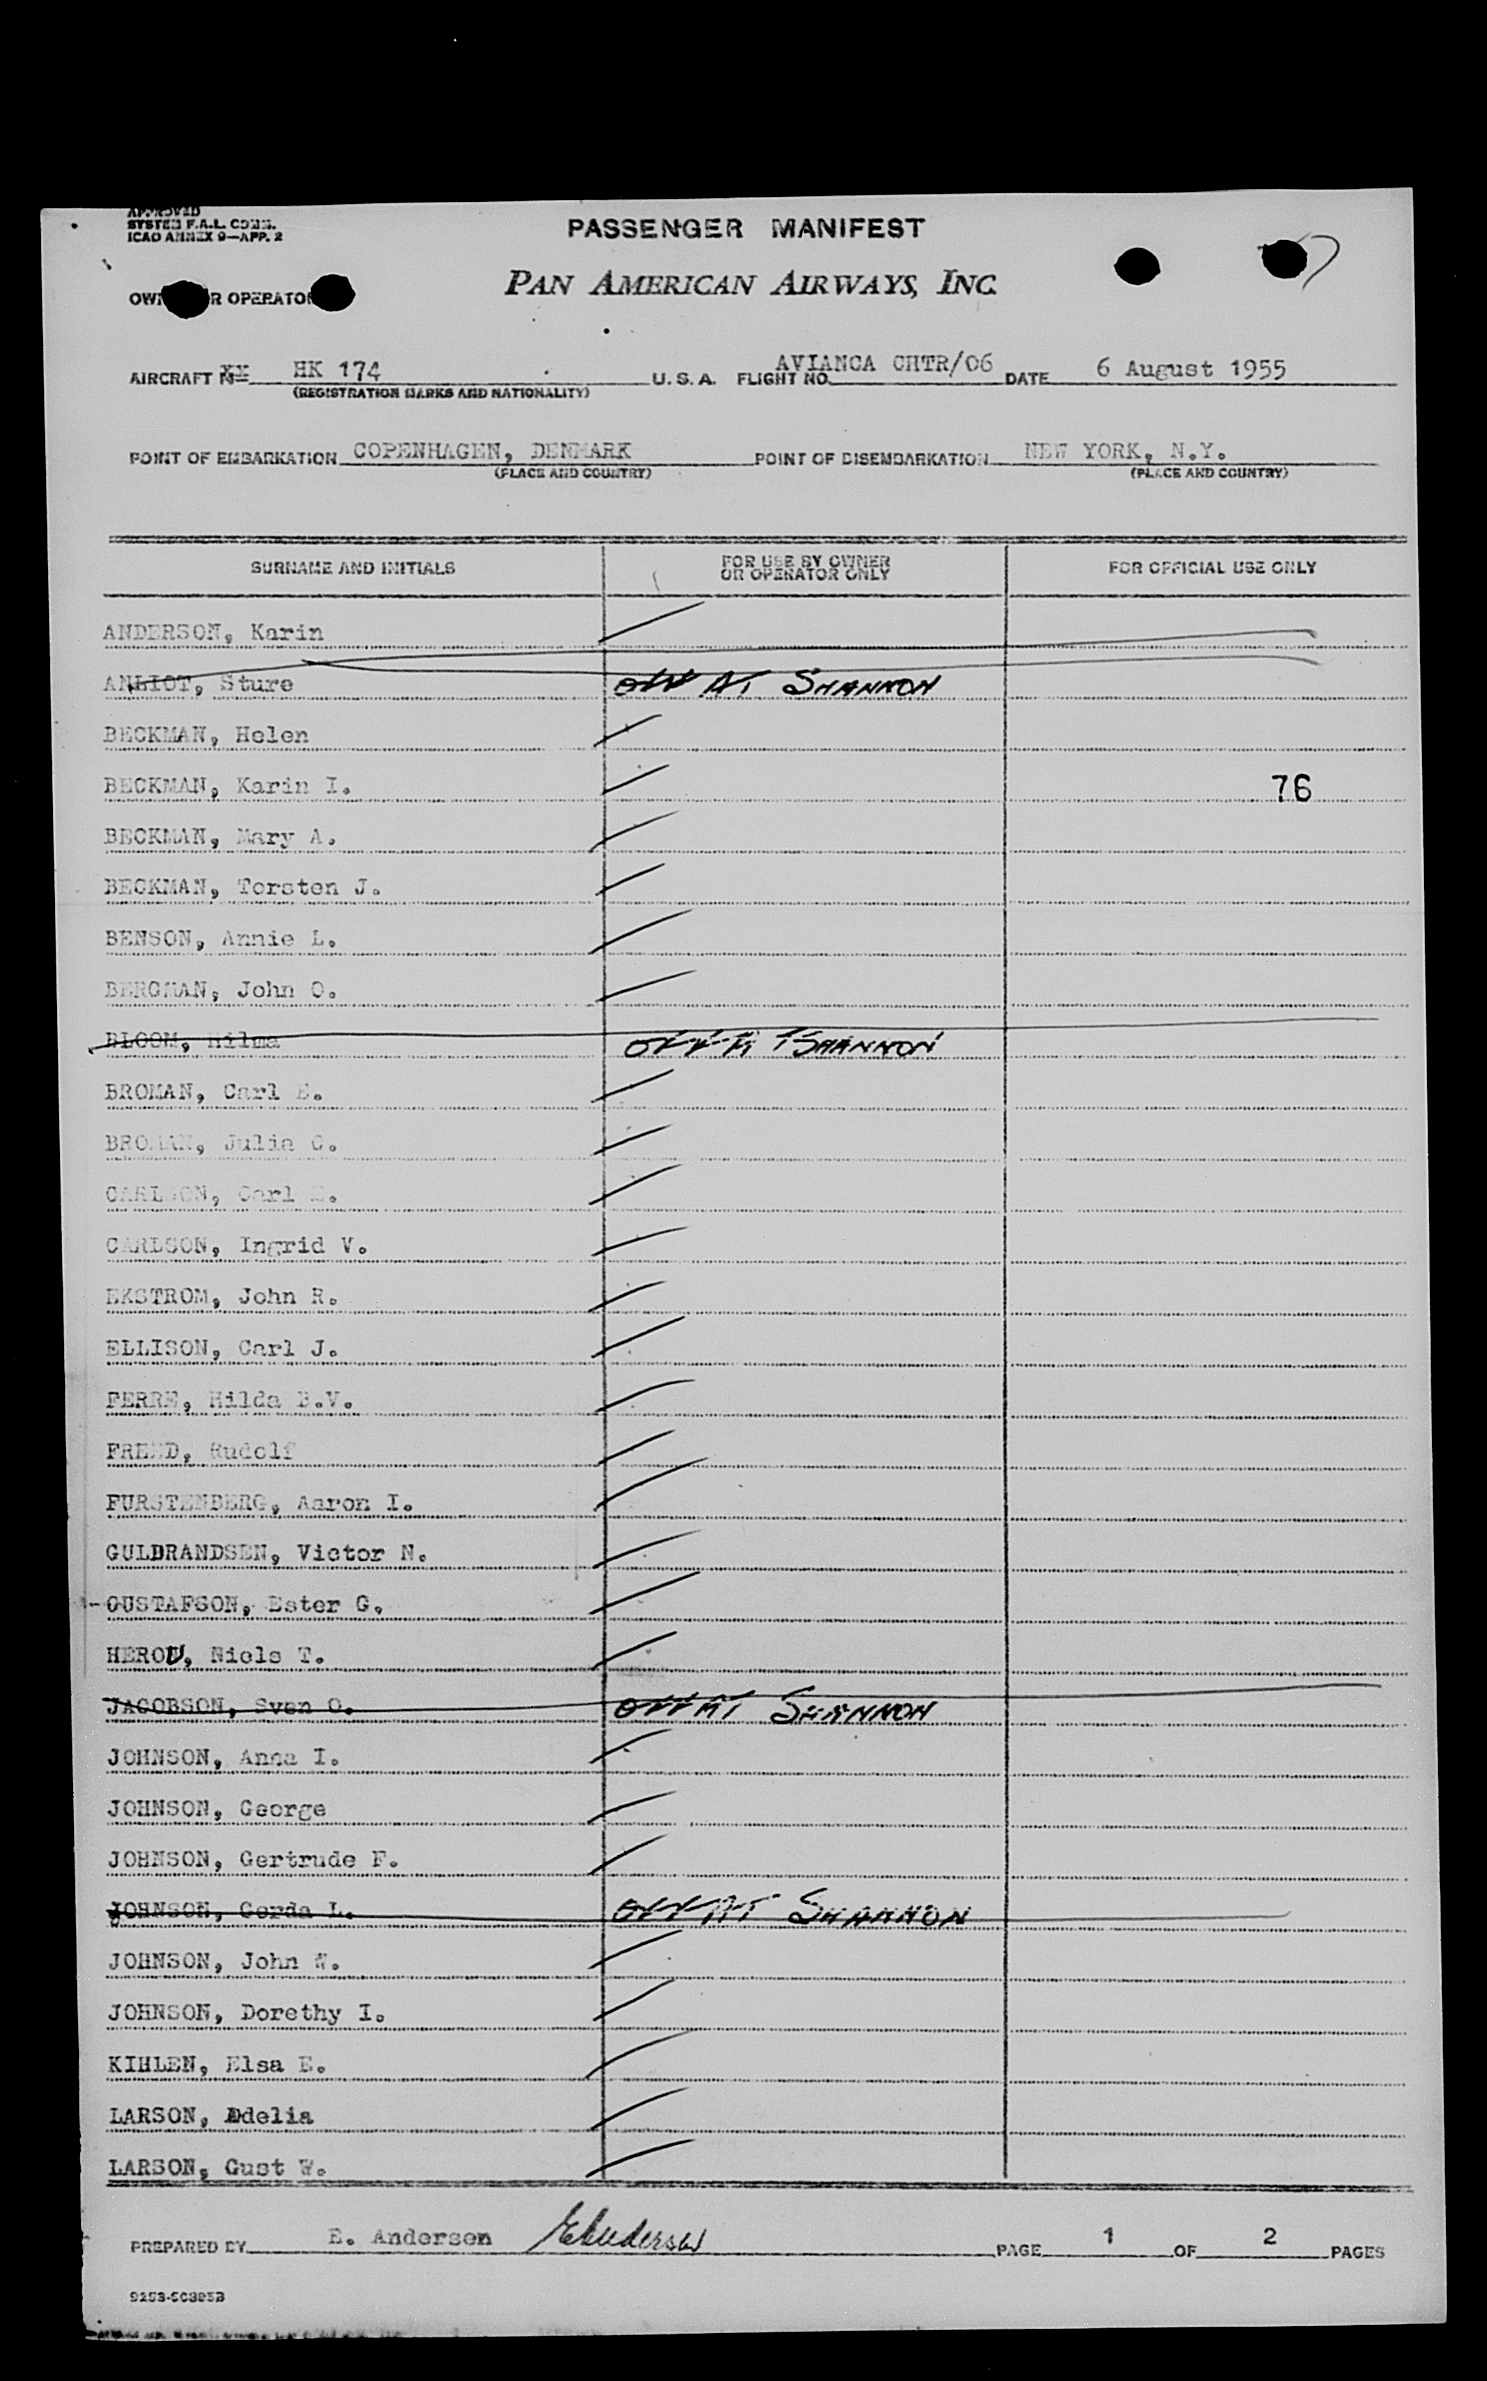 APPROVED
SYSTEM F.A.L. COMM.
ICAO ANNEX 9—APP. 2
PASSENGER MANIFEST
PAN AMERICAN AIRWAYS, INC.
OWNER OR OPERATOR
AIRCRAFT HK 174 U. S. A. FLIGHT NO. AVIANCA CHTR/06 DATE 6 August 1955
(REGISTRATION MARKS AND NATIONALITY)
POINT OF EMBARKATION COPENHAGEN, DENMARK POINT OF DISEMBARKATION NEW YORK, N.Y.
(PLACE AND COUNTRY) (PLACE AND COUNTRY)
SURNAME AND INITIALS FOR USE BY OWNER OR OPERATOR ONLY FOR OFFICIAL USE ONLY
ANDERSON, Karin
ANLIOT, Sture OFF AT SHANNON
BECKMAN, Helen
BECKMAN, Karin I. 76
BECKMAN, Mary A.
BECKMAN, Torsten J.
BENSON, Annie L.
BERGMAN, John O.
BLOOM, Hilma OFF AT SHANNON
BROMAN, Carl E.
BROMAN, Julia C.
CARLSON, Carl E.
CARLSON, Ingrid V.
EKSTROM, John R.
ELLISON, Carl J.
FERRE, Hilda B.V.
FREED, Rudolf
FURSTENBERG, Aaron I.
GULBRANDSEN, Victor N.
GUSTAFSON, Ester G.
HEROU, Niels T.
JACOBSON, Sven O. OFF AT SHANNON
JOHNSON, Anna I.
JOHNSON, George
JOHNSON, Gertrude F.
JOHNSON, Gerda L. OFF AT SHANNON
JOHNSON, John W.
JOHNSON, Dorethy I.
KIHLEN, Elsa E.
LARSON, Adelia
LARSON, Gust W.
PREPARED BY E. Andersen EAndersen PAGE 1 OF 2 PAGES